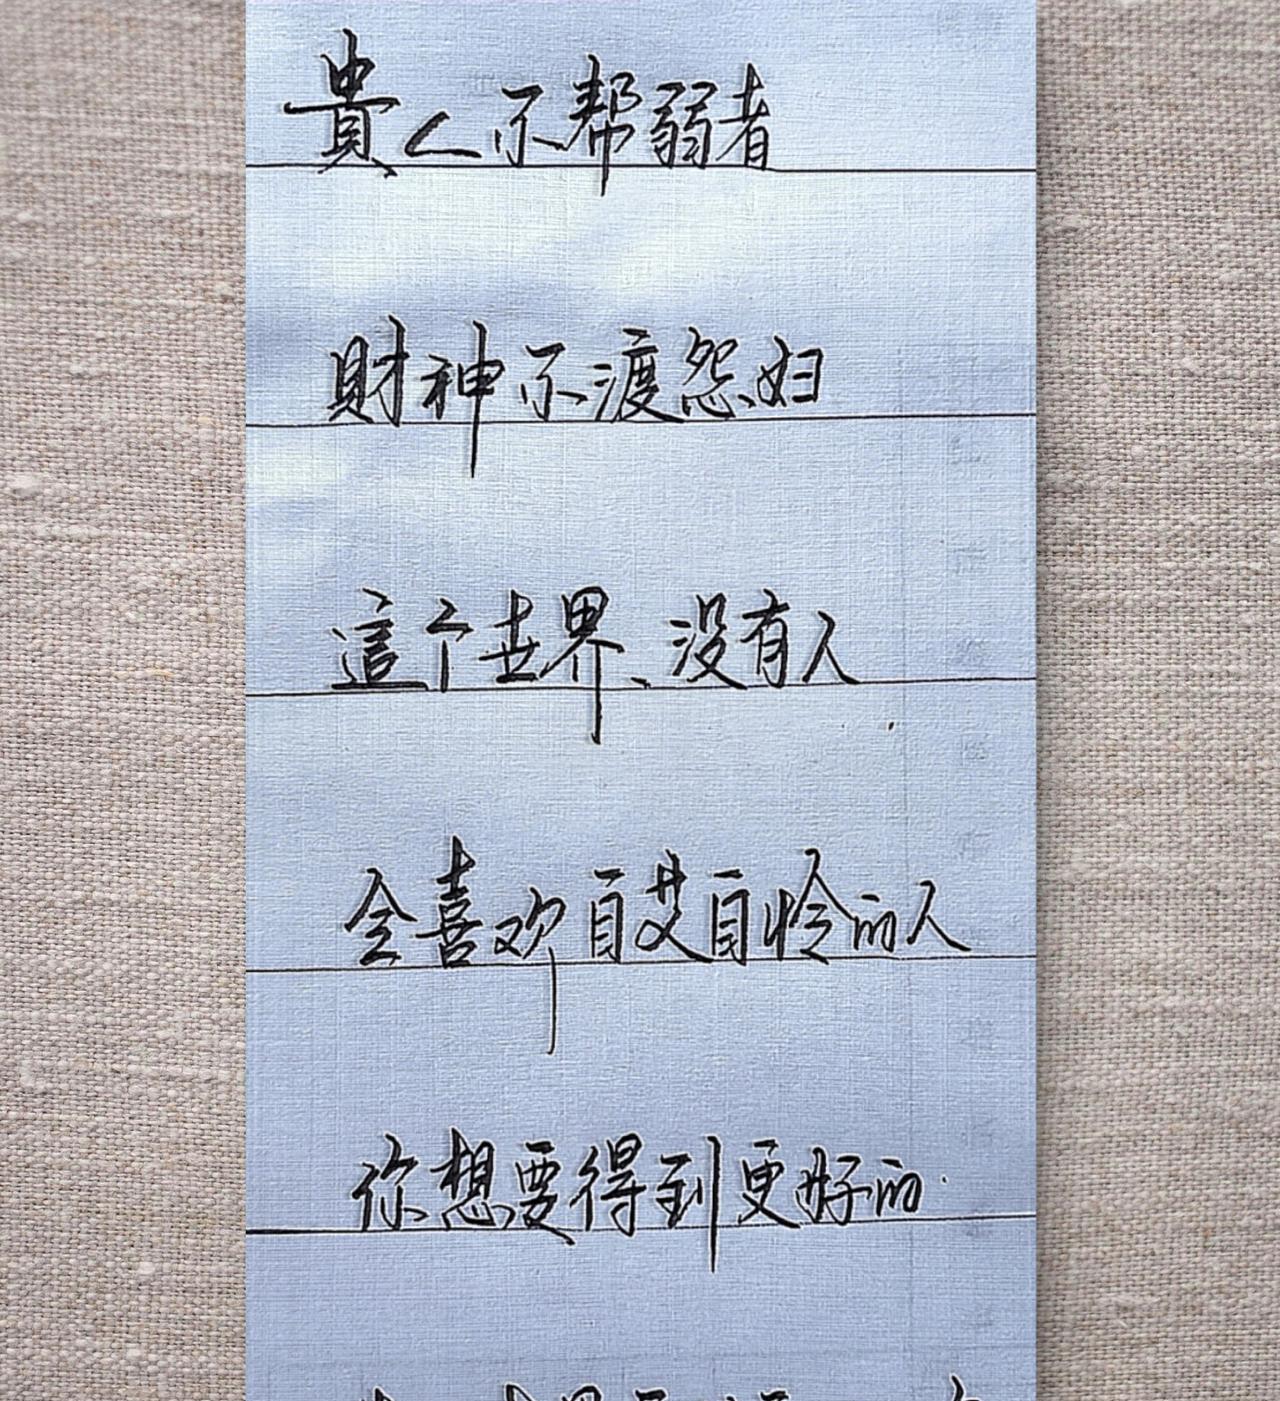 貴人不帮弱者
財神不渡怨妇
這个世界、没有人
会喜欢自艾自怜的人
你想要得到更好的